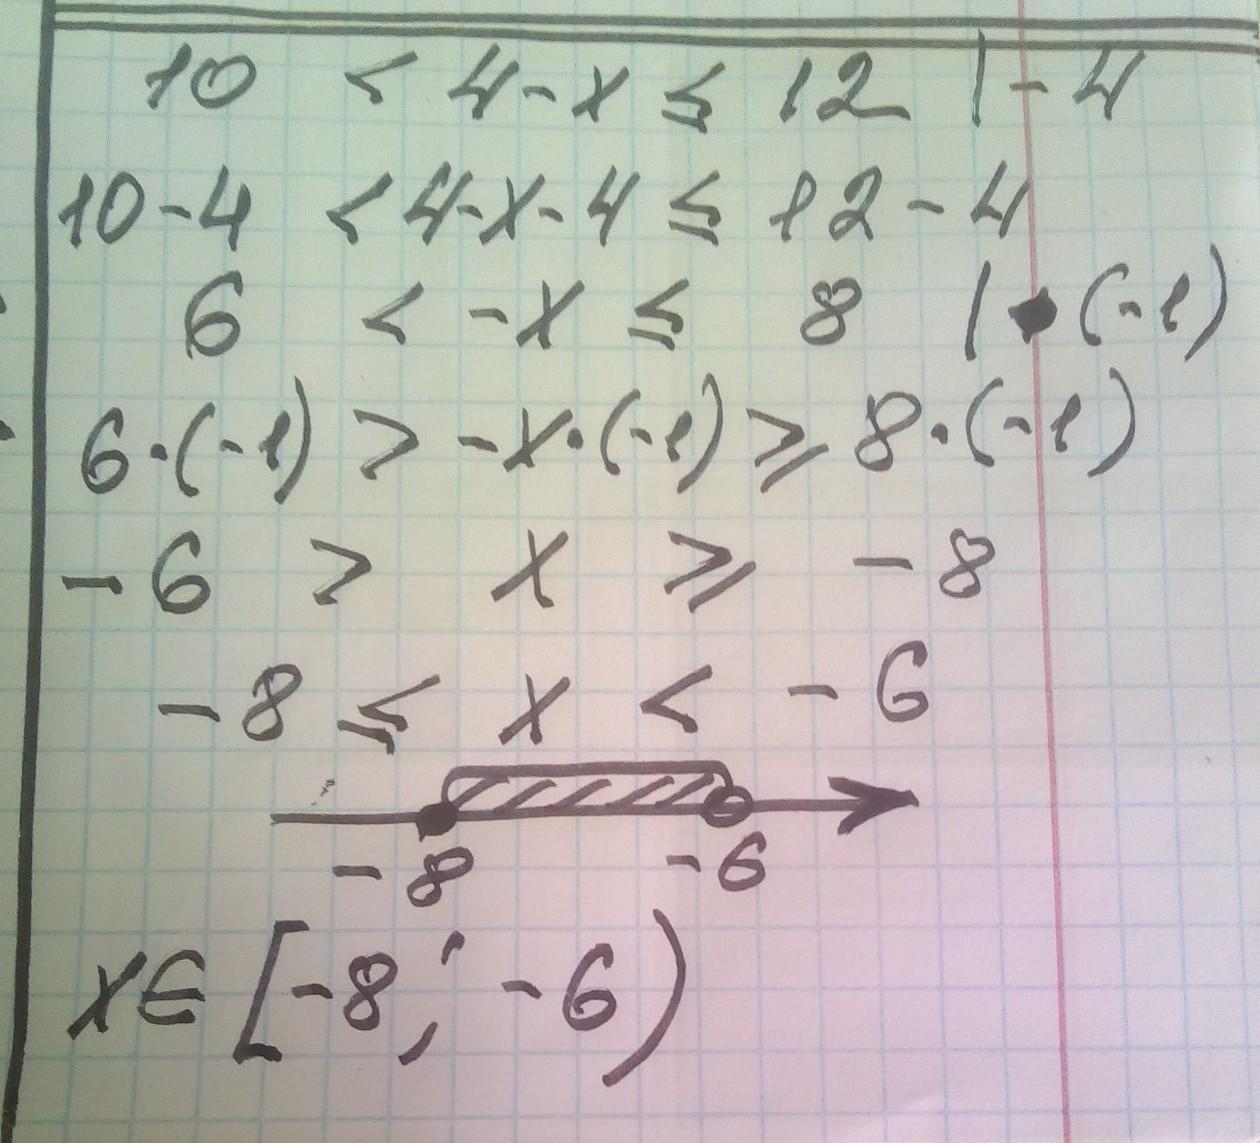 10 < 4-x ≤ 12 |-4
10-4 < 4-x-4 ≤ 12-4
6 < -x ≤ 8 | • (-1)
6·(-1) > -x·(-1) ≥ 8·(-1)
-6 > x ≥ -8
-8 ≤ x < -6
-8 -6
x∈[-8; -6)